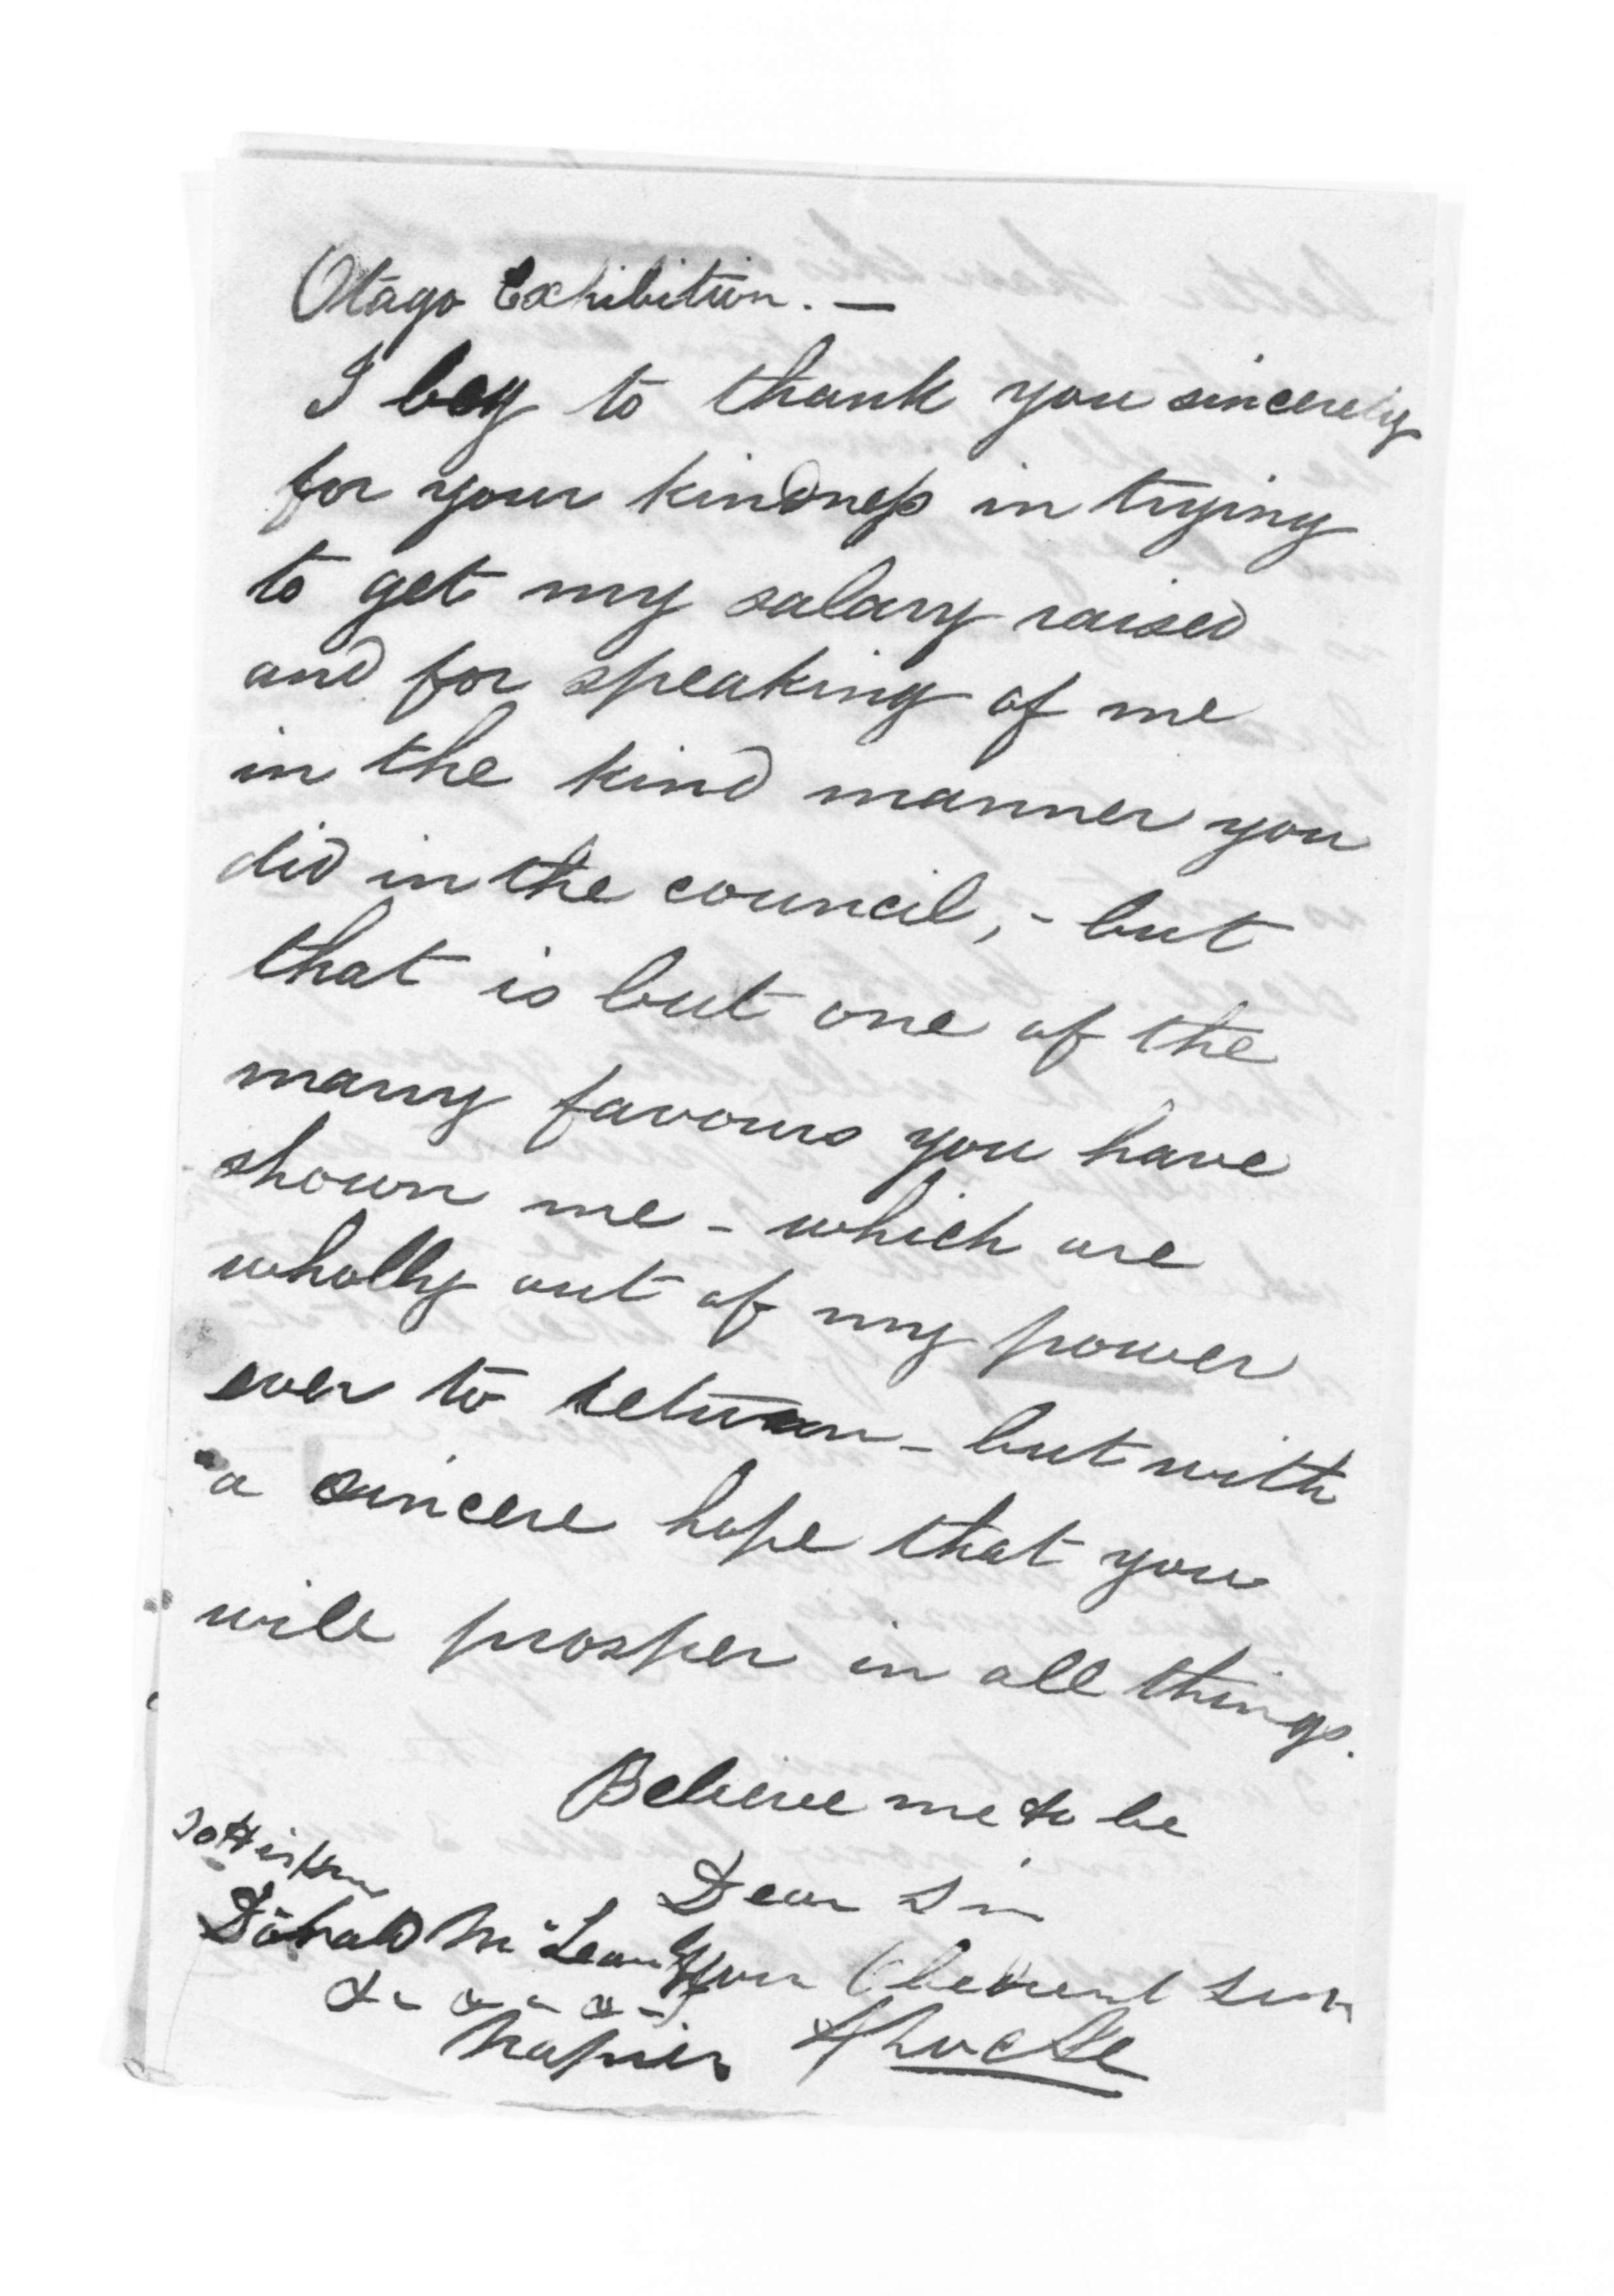 Otago Exhibition. —
I beg to thank you sincerely
for your kindness in trying
to get my salary raised
and for speaking of me
in the kind manner you
did in the council, - but
that is but one of the
many favours you have
shown me - which are
wholly out of my power
ever to return - but with
a sincere hope that you
will prosper in all things.
Believe me to be
Dear Sir
Your Obedient Serv
To His Hon
Donald McLean Esqr
Napier